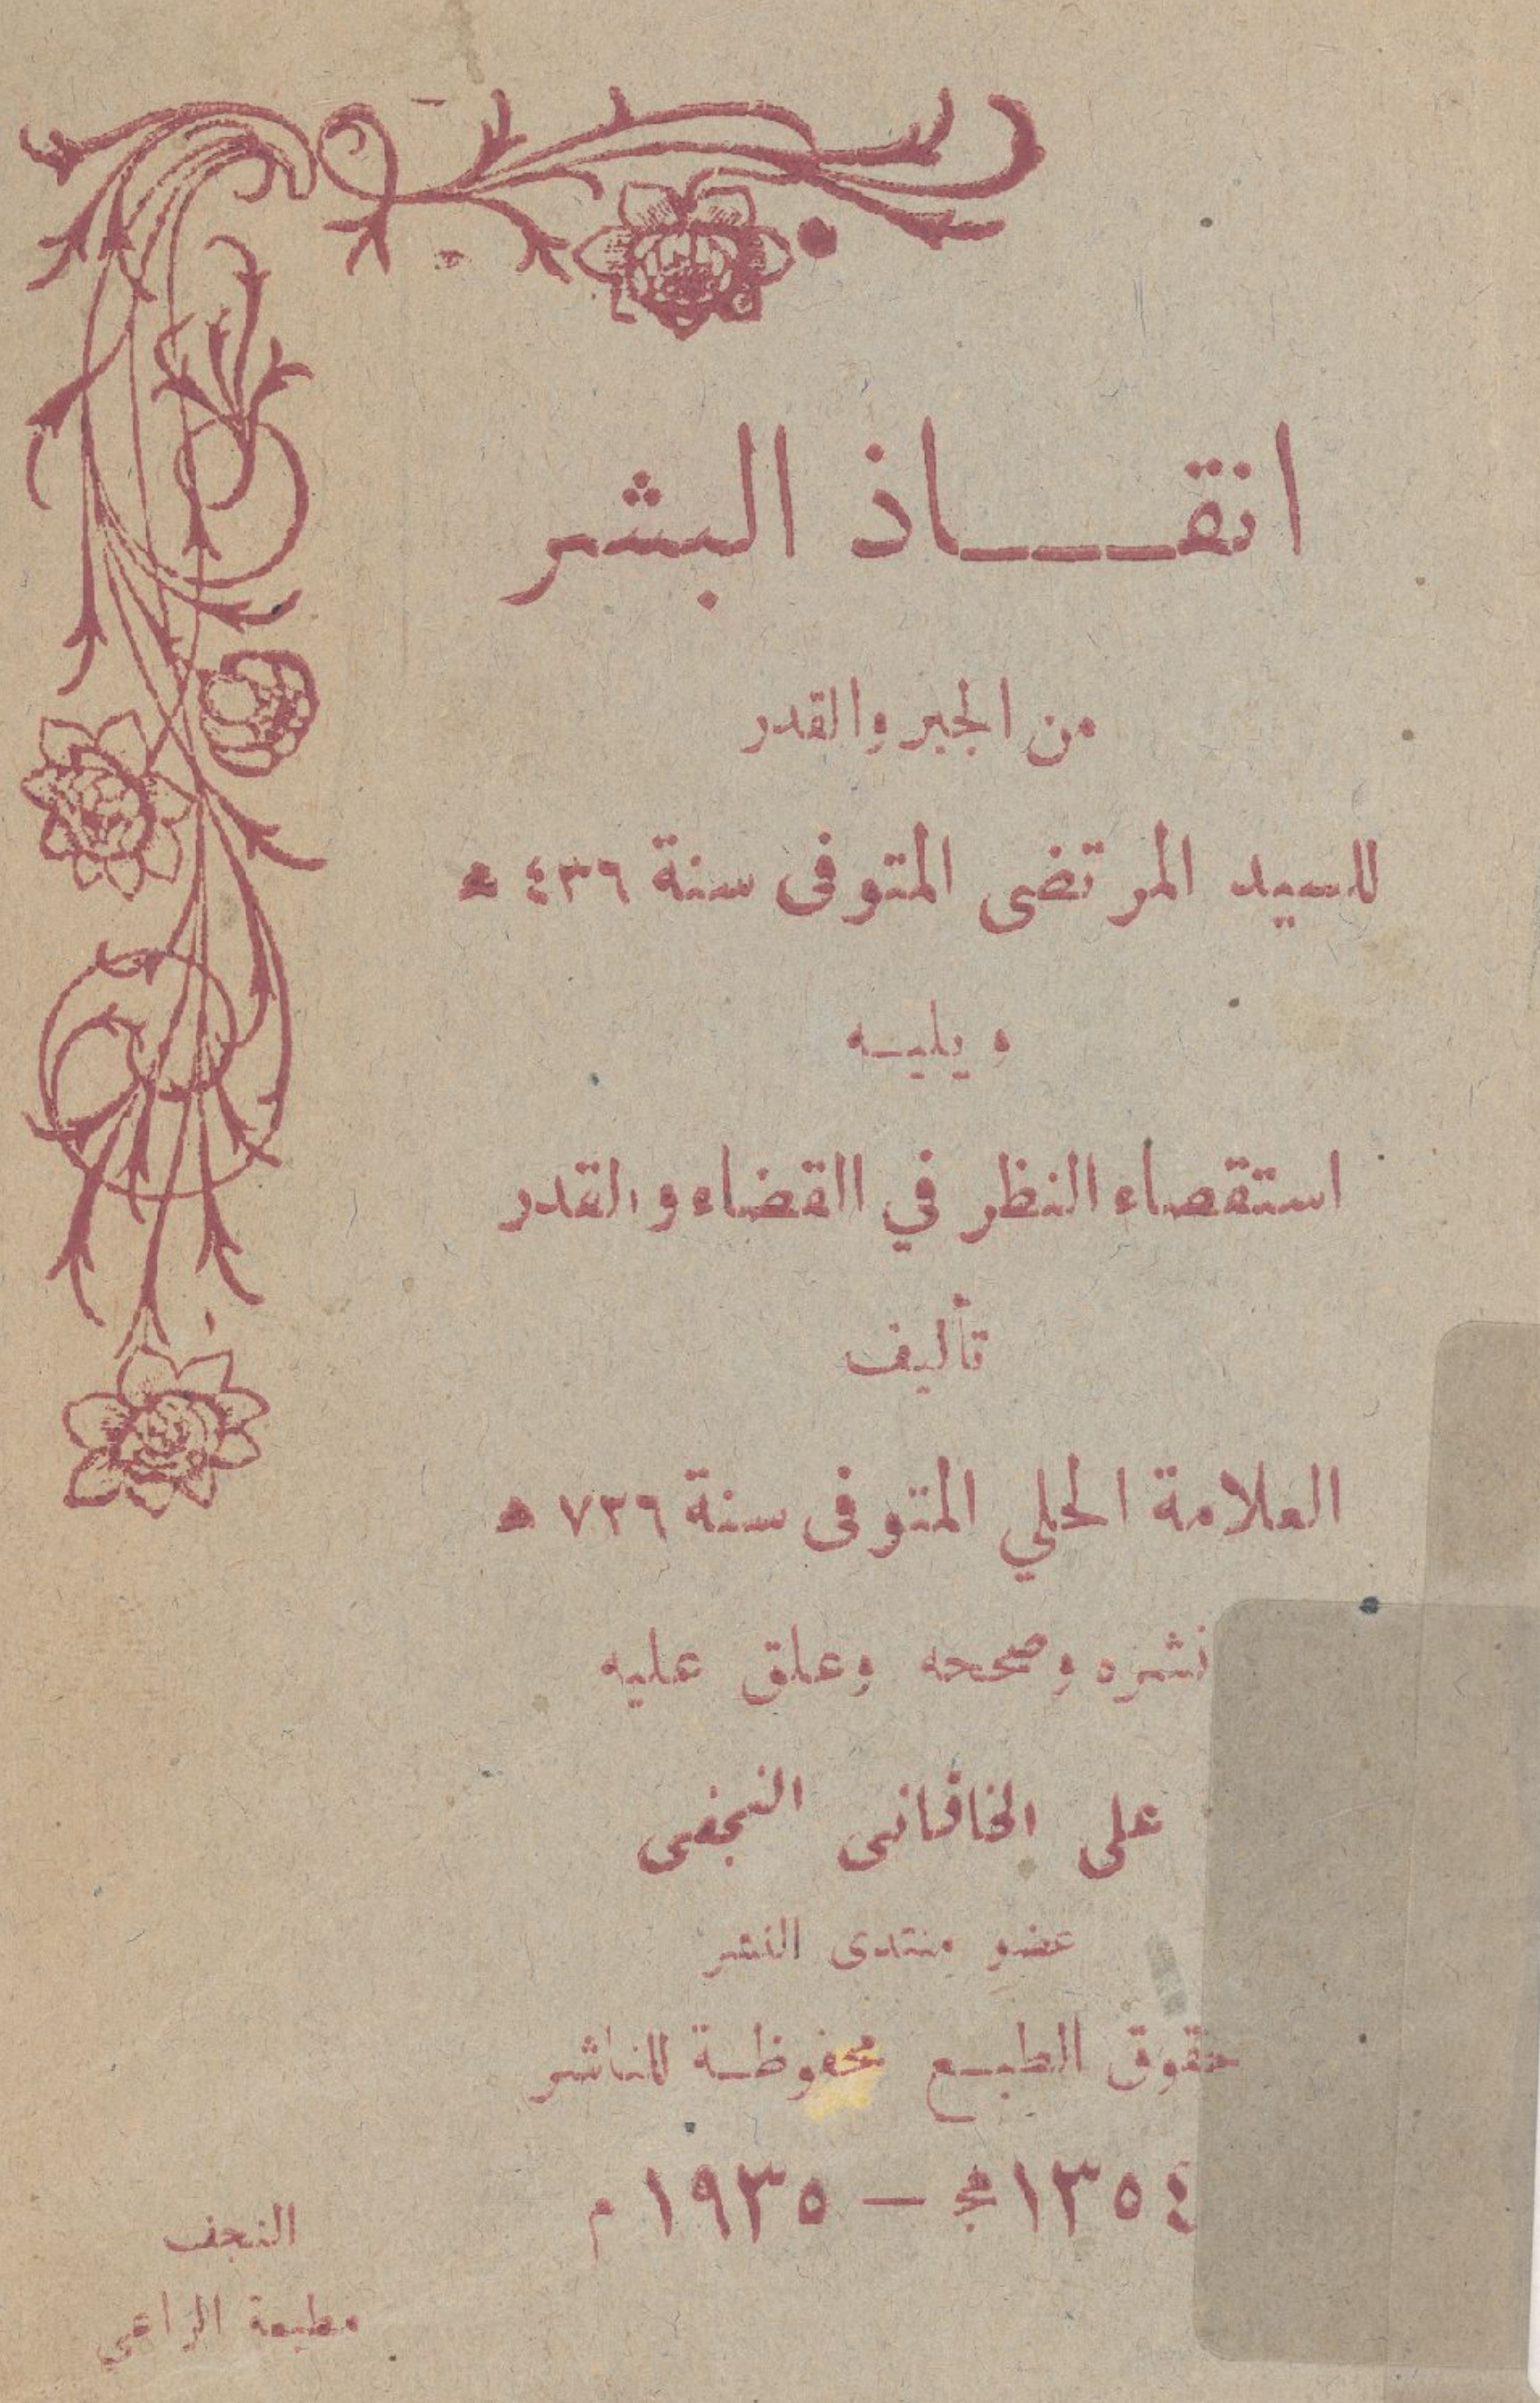 انقاذ البشر
من الجبر والقدر
للسيد المرتضى المتوفى سنة ٤٣٦ ه
ويليه
استقصاء النظر في القضاء والقدر
تأليف
العلامة الحلي المتوفى سنة ٧٢٦ ه
نشره وصححه وعلق عليه
على الخاقانى النجفى
عضو منتدى النشر
حقوق الطبع محفوظة للناشر
١٣٥٤ هج — ١٩٣٥ م
النجف
مطبعة الراعي